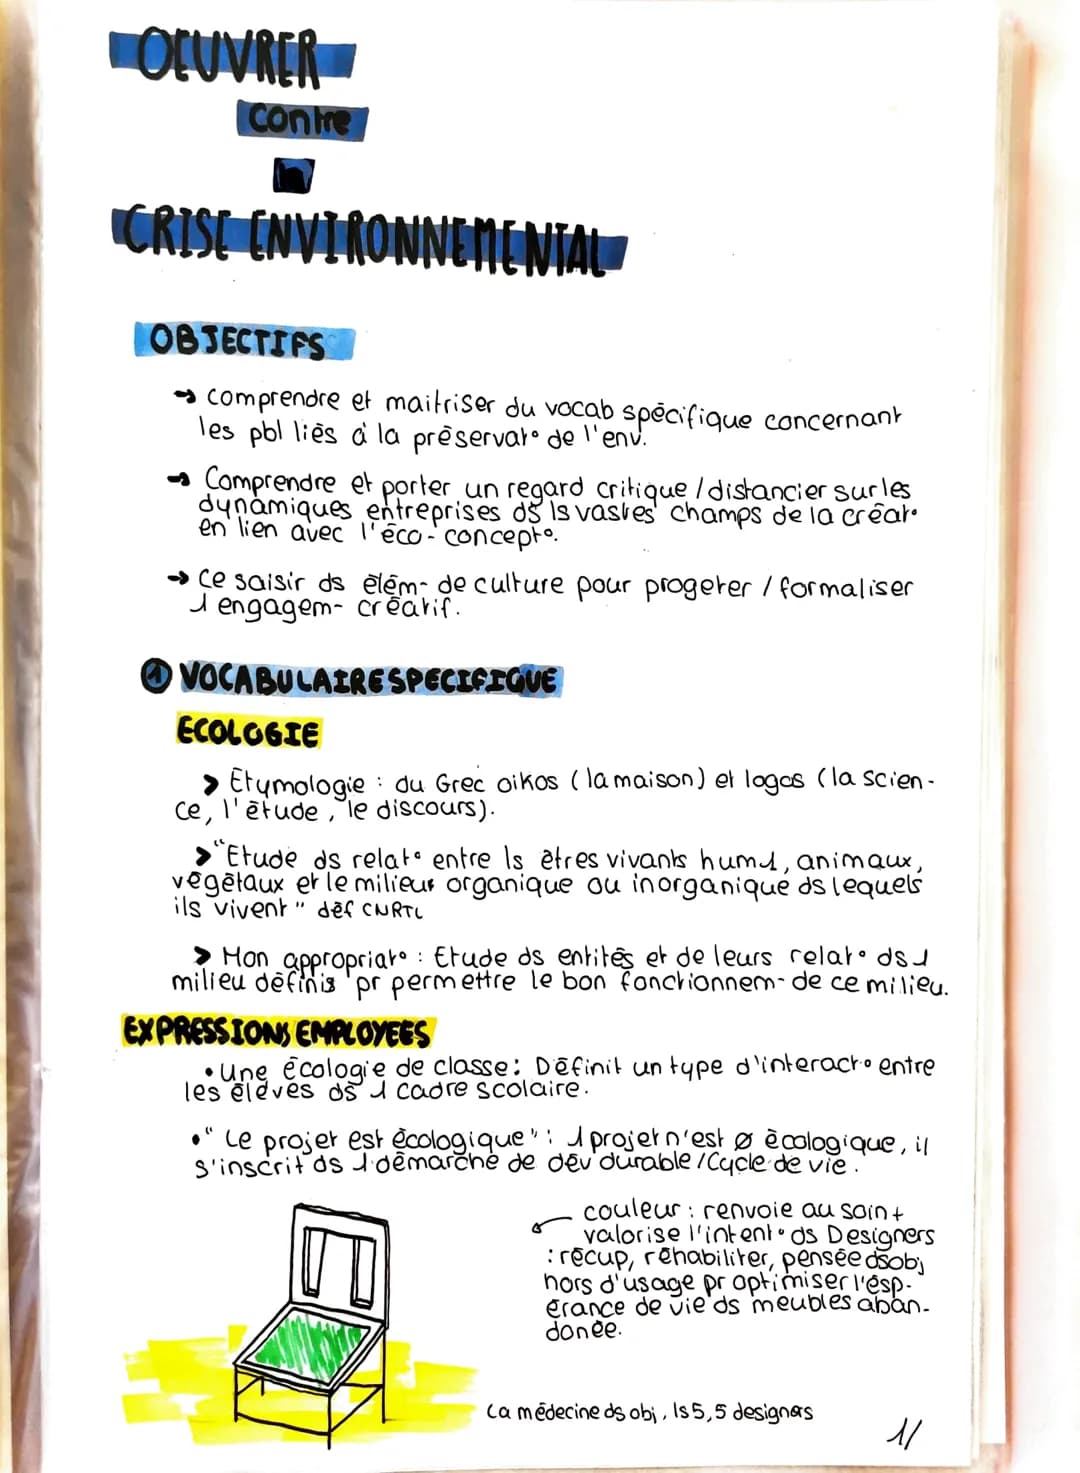 OEUVRER
contre
la
CRISE ENVIRONNEMENTAL
OBJECTIFS
→ comprendre et maitriser du vocab spécifique concernant
les pbl liés à la préservat° de l'env.
→ Comprendre et porter un regard critique / distancier sur les
dynamiques entreprises ds ls vastes champs de la créat°
en lien avec l'éco-concept°.
→ Ce saisir ds élém- de culture pour progeter / formaliser
1 engagem- créatif.
① VOCABULAIRE SPECIFIQUE
ECOLOGIE
> Etymologie : du Grec oikos (la maison) et logos (la scien-
ce, l'étude, le discours).
> "Etude ds relat° entre ls êtres vivants hum1, animaux,
végétaux et le milieur organique ou inorganique ds lequels
ils vivent" déf CNRTL
> Mon appropriat° : Etude ds entités et de leurs relat° ds 1
milieu définis pr permettre le bon fonctionnem- de ce milieu.
EXPRESSIONS EMPLOYEES
• Une écologie de classe : Définit un type d'interact° entre
les élèves ds 1 cadre scolaire.
• "Le projet est écologique" : 1 projet n'est ø écologique, il
s'inscrit ds 1 démarche de dév durable / Cycle de vie.
couleur : renvoie au soin +
valorise l'intent° ds Designers
: récup, réhabiliter, pensée ds obj
hors d'usage pr optimiser l'ésp-
érance de vie ds meubles aban-
donée.
La médecine ds obj, ls 5,5 designers
1/